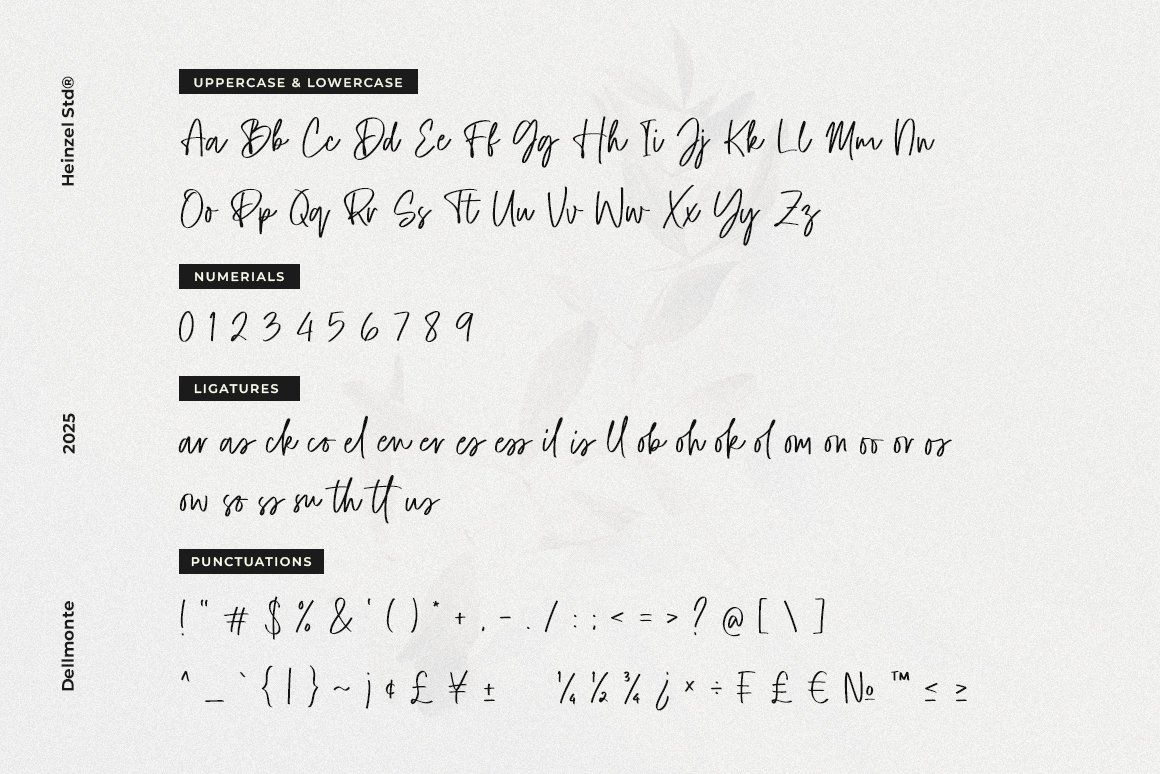 Heinzel Std®
UPPERCASE & LOWERCASE
Aa Bb Cc Dd Ee Ff Gg Hh Ii Jj Kk Ll Mm Nn
Oo Pp Qq Rr Ss Tt Uu Vv Ww Xx Yy Zz
NUMERIALS
0 1 2 3 4 5 6 7 8 9
2025
LIGATURES
ar as ck co el en er es ess il is ll ob oh ok ol om on oo or os
ow so ss su th tt us
Dellmonte
PUNCTUATIONS
! " # $ % & ' ( ) * + , - . / : ; < = > ? @ [ \ ]
^ _ ` { | } ~ ¡ ¢ £ ¥ ± ¼ ½ ¾ ¿ × ÷ ₣ ₤ € № ™ ≤ ≥